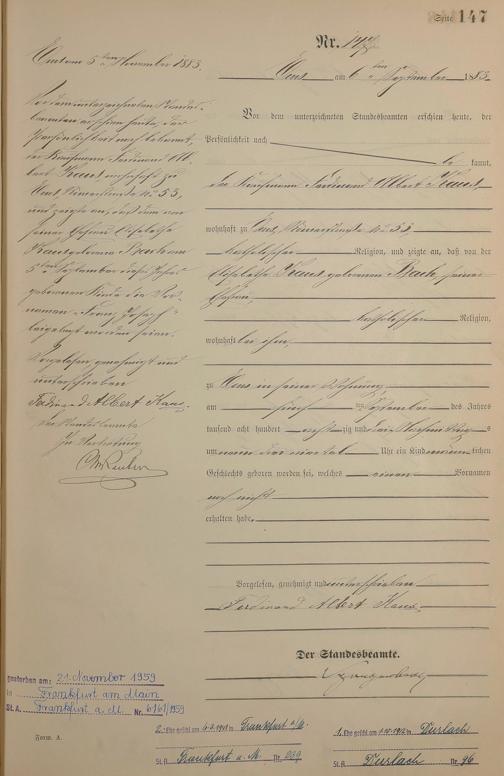 Seite 147
Nr. 147
Ems am 6ten September 1883.
Vor dem unterzeichneten Standesbeamten erschien heute, der
Persönlichkeit nach
be kannt,
der Kaufmann Ferdinand Albert Kaus
wohnhaft zu Ems, Römerstraße No 53,
katholischer Religion, und zeigte an, daß von der
Elisabetha Kaus geborenen Bach, seiner
Ehefrau,
katholischer Religion,
wohnhaft bei ihm,
zu Ems in seiner Wohnung,
am fünften September des Jahres
tausend acht hundert achtzig und drei Nachmittags
um Uhr ein Kind männlichen
Geschlechts geboren worden sei, welches einen Vornamen
noch nicht
erhalten habe.
Vorgelesen, genehmigt und unterschrieben
Ferdinand Albert Kaus
Der Standesbeamte.
Ems am 5ten November 1883.
Vor dem unterzeichneten Standes-
beamten erschien heute, der
Persönlichkeit nach bekannt,
der Kaufmann Ferdinand Al-
bert Kaus wohnhaft zu
Ems Römerstraße No 53,
und zeigte an, daß dem von
seiner Ehefrau Elisabetha
Kaus geborenen Bach am
5ten September dieses Jahres
geborenen Kinde die Vor-
namen "Franz Joseph"
beigelegt worden seien.
Vorgelesen, genehmigt und
unterschrieben
Ferdinand Albert Kaus
Der Standesbeamte
In Vertretung
gestorben am: 21. November 1959
in Frankfurt am Main
St.A. Frankfurt a.M. Nr. 6161/1959
Form. A.
2. Ehe geschl. am Frankfurt a/M.
St.A. Frankfurt a. M. Nr.
1. Ehe geschl. am Durlach
St.A. Durlach Nr. 96